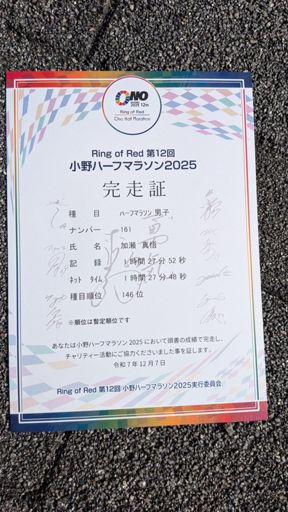 ONO
2025 12th
Ring of Red
Ono Half Marathon
Ring of Red 第12回
小野ハーフマラソン2025
完走証
種 目 ハーフマラソン 男子
ナンバー 161
氏 名 加瀬 真悟
記 録 1時間27分52秒
ネットタイム 1時間27分48秒
種目順位 146位
※順位は暫定順位です
あなたは小野ハーフマラソン 2025 において頭書の成績で完走し、
チャリティー活動にご協力くださいました事を証します。
令和7年12月7日
Ring of Red 第12回 小野ハーフマラソン2025実行委員会